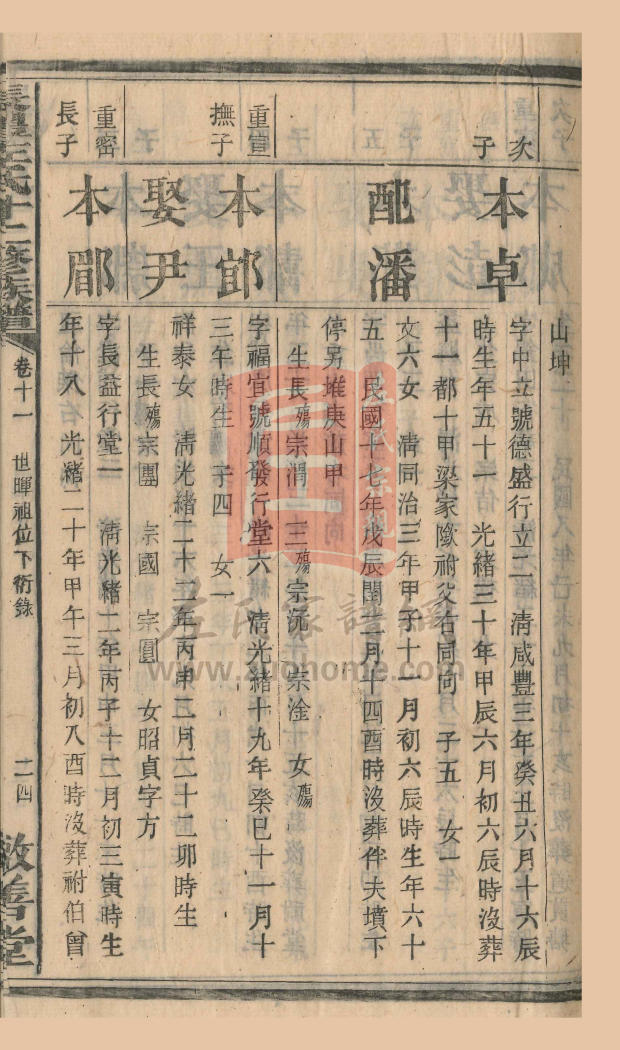 山坤
次子
本卓
字中立號德盛行立二 清咸豐三年癸丑六月十六辰
時生年五十一 光緒三十年甲辰六月初六辰時沒葬
十一都十甲梁家 祔父右同向 子五 女一
配潘
文六女 清同治三年甲子十一月初六辰時生年六十
五 民國十七年戊辰閏二月十四酉時沒葬伴夫墳下
停另堆庚山甲向
生長殤宗渭 二三殤宗沅 宗淦 女殤
重宣撫子
本邮
字福宜號順發行堂六 清光緒十九年癸巳十一月十
三午時生 子四 女一
娶尹
祥泰女 清光緒二十二年丙申二月二十二卯時生
生長殤宗團 宗國 宗圓 女昭貞字方
重密長子
本郿
字長益行堂一 清光緒二年丙子十二月初三寅時生
年十八 光緒二十年甲午三月初八酉時沒葬祔伯曾
左氏十二修族譜 卷十一 世暉祖位下衍錄 二四 敬善堂
左氏家譜網
www.zuohome.com